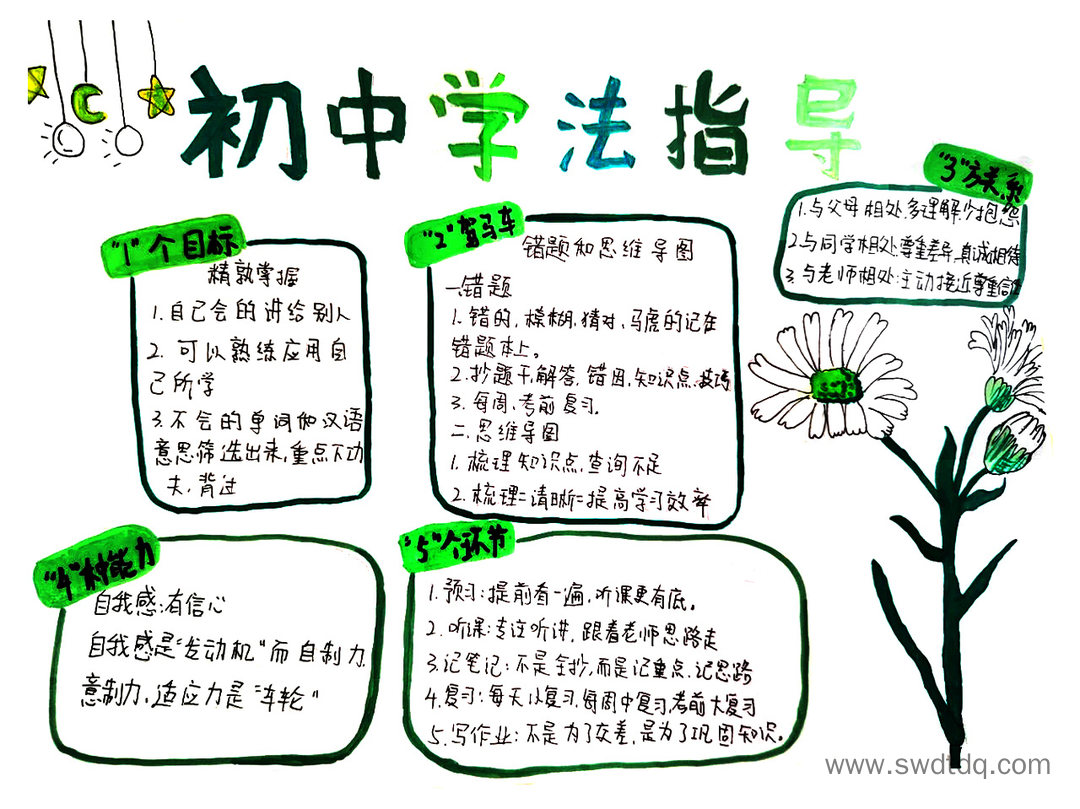 初中学法指导
"1"个目标
精熟掌握
1.自己会的讲给别人
2. 可以熟练应用自
己所学
3.不会的单词和汉语
意思筛选出来,重点下功
夫,背过
"2"驾马车
错题和思维导图
一.错题
1.错的,模糊,猜对,马虎的记在
错题本上。
2.抄题干,解答,错因,知识点,技巧
3.每周,考前复习.
二.思维导图
1.梳理知识点,查询不足
2.梳理=清晰=提高学习效率
"3"方关系
1.与父母相处,多理解少抱怨
2.与同学相处:尊重差异,真诚相待
3.与老师相处:主动接近尊重信任
"4"种能力
自我感:有信心
自我感是"发动机"而自制力,
意制力,适应力是"车轮"
"5"个环节
1.预习:提前看一遍,听课更有底。
2.听课:专注听讲,跟着老师思路走
3.记笔记:不是全抄,而是记重点,记思路
4.复习:每天小复习,每周中复习,考前大复习
5.写作业:不是为了交差,是为了巩固知识。
www.swdtdq.com